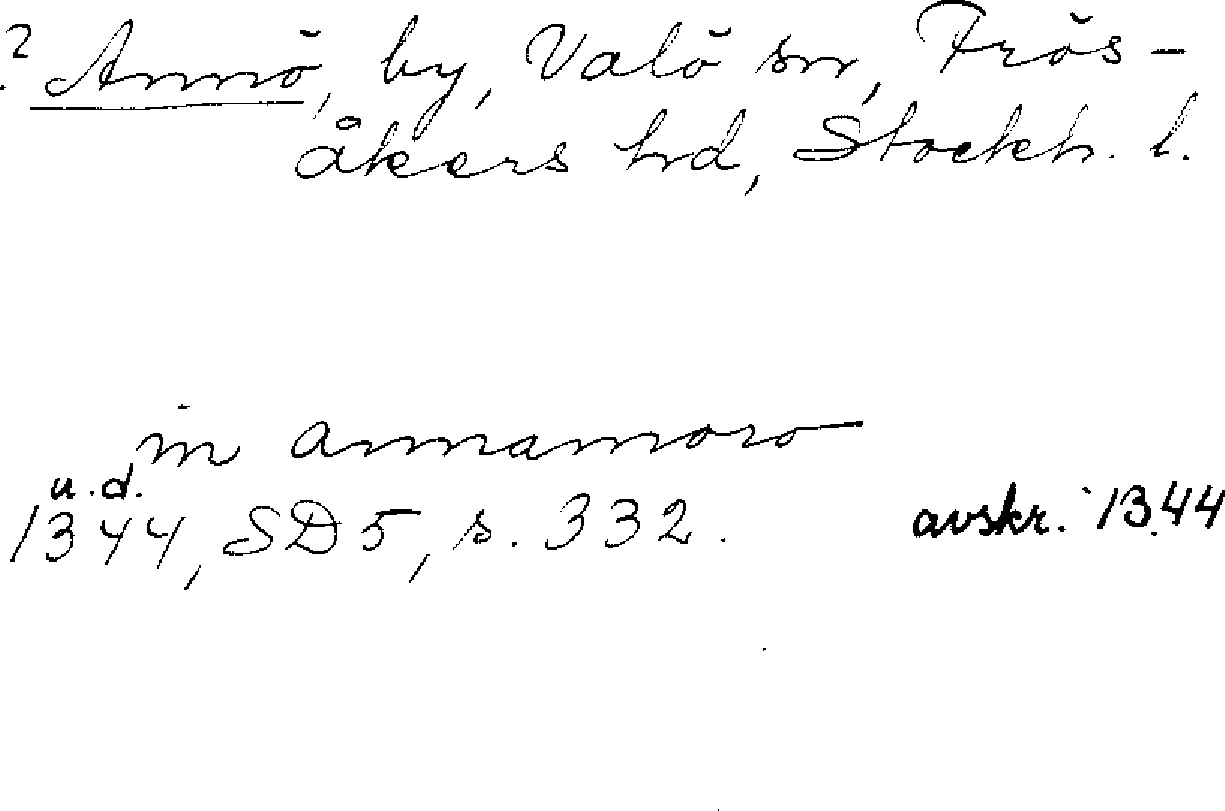 ? Annö, by, Valö sn, Frös-
åkers hd, Stockh. l.
in annamoro
u.d.
1344, SD 5, s. 332. avskr. 1344